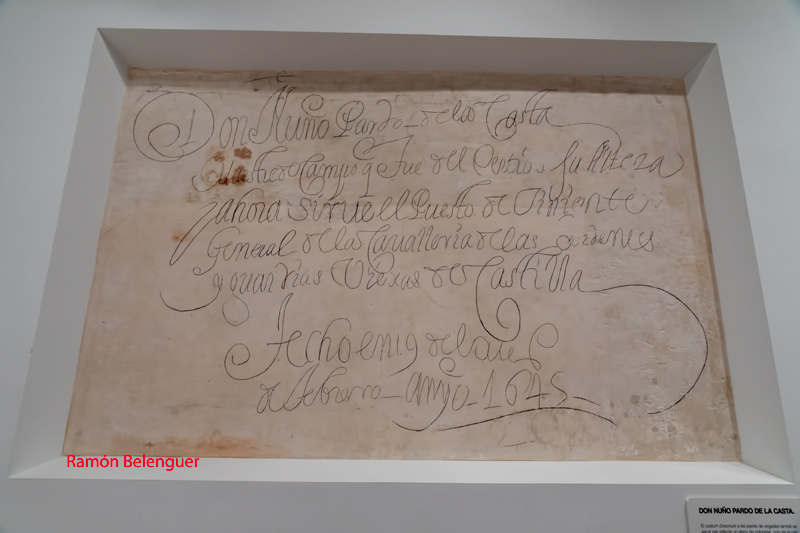 Don Nuño Pardo de la Casta
Maestre de Campo q fue del su Alteza
ahora sirue el Puesto de Teniente
General de la Caualleria de las ordenes
y guardias Viexas de Castilla
fecho en 19 del mes
de febrero año 1645
Ramón Belenguer
DON NUÑO PARDO DE LA CASTA.